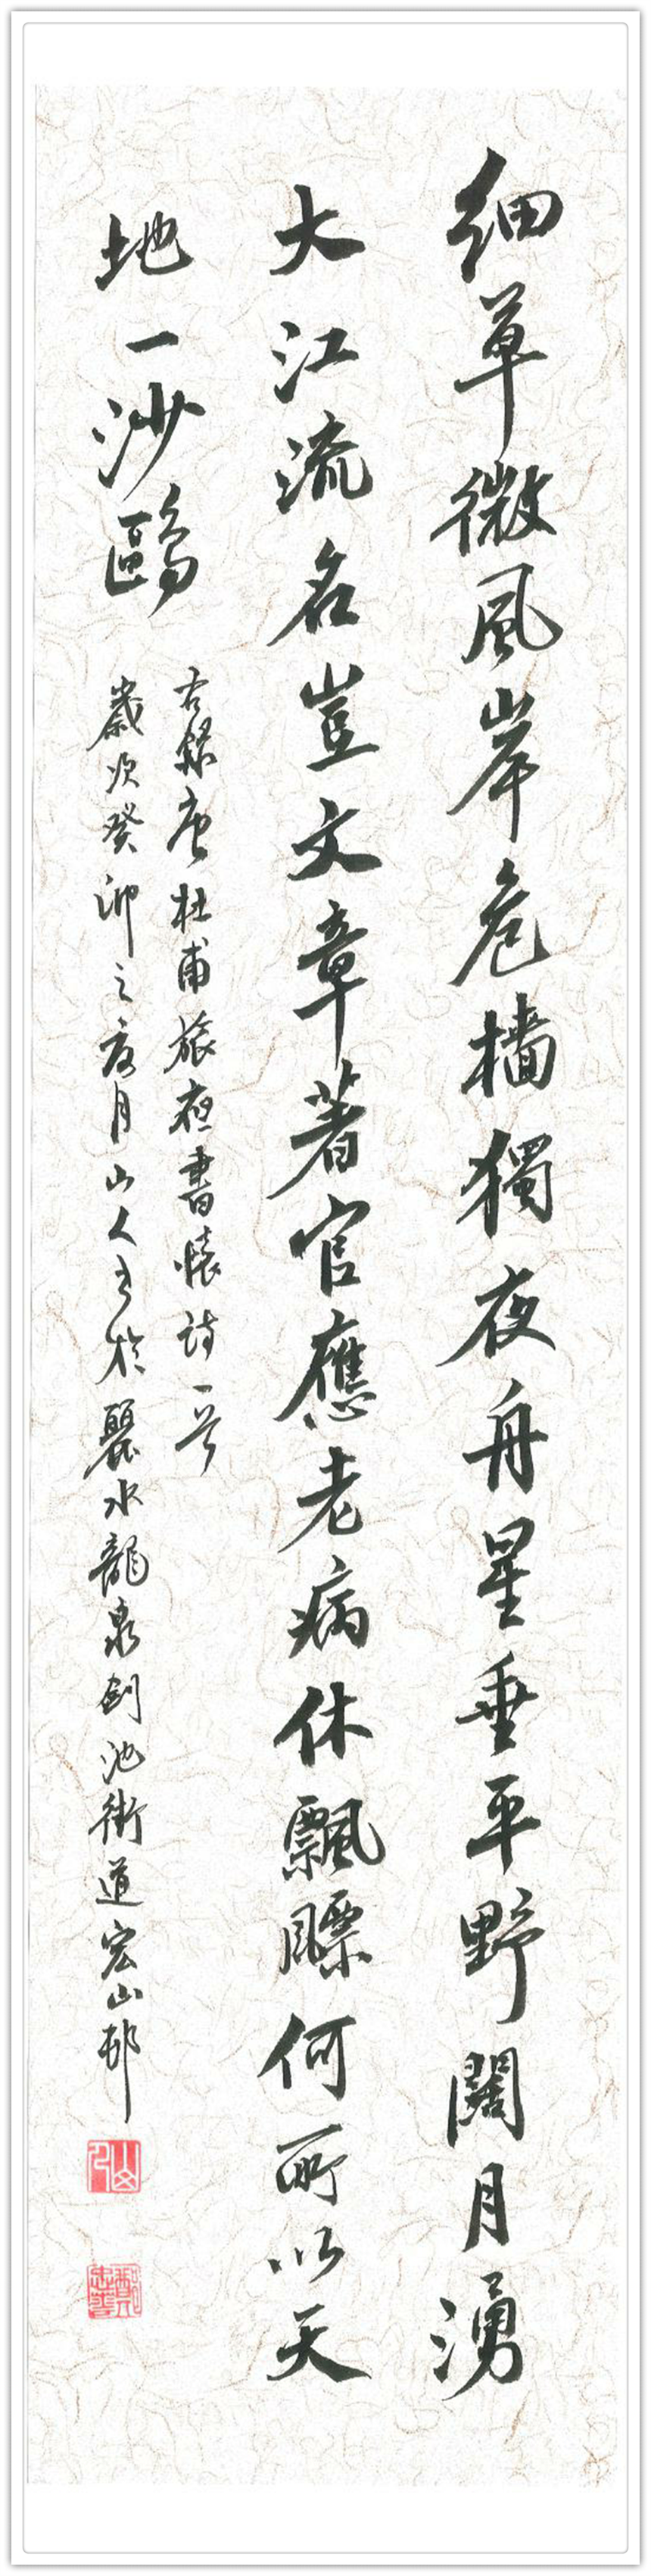 細草微風岸危檣獨夜舟星垂平野闊月湧
大江流名豈文章著官應老病休飄飃何所以天
地一沙鷗
右錄唐杜甫旅夜書懷詩一首
歲次癸卯之月山人書於麗水龍泉劍池街道宏山邨